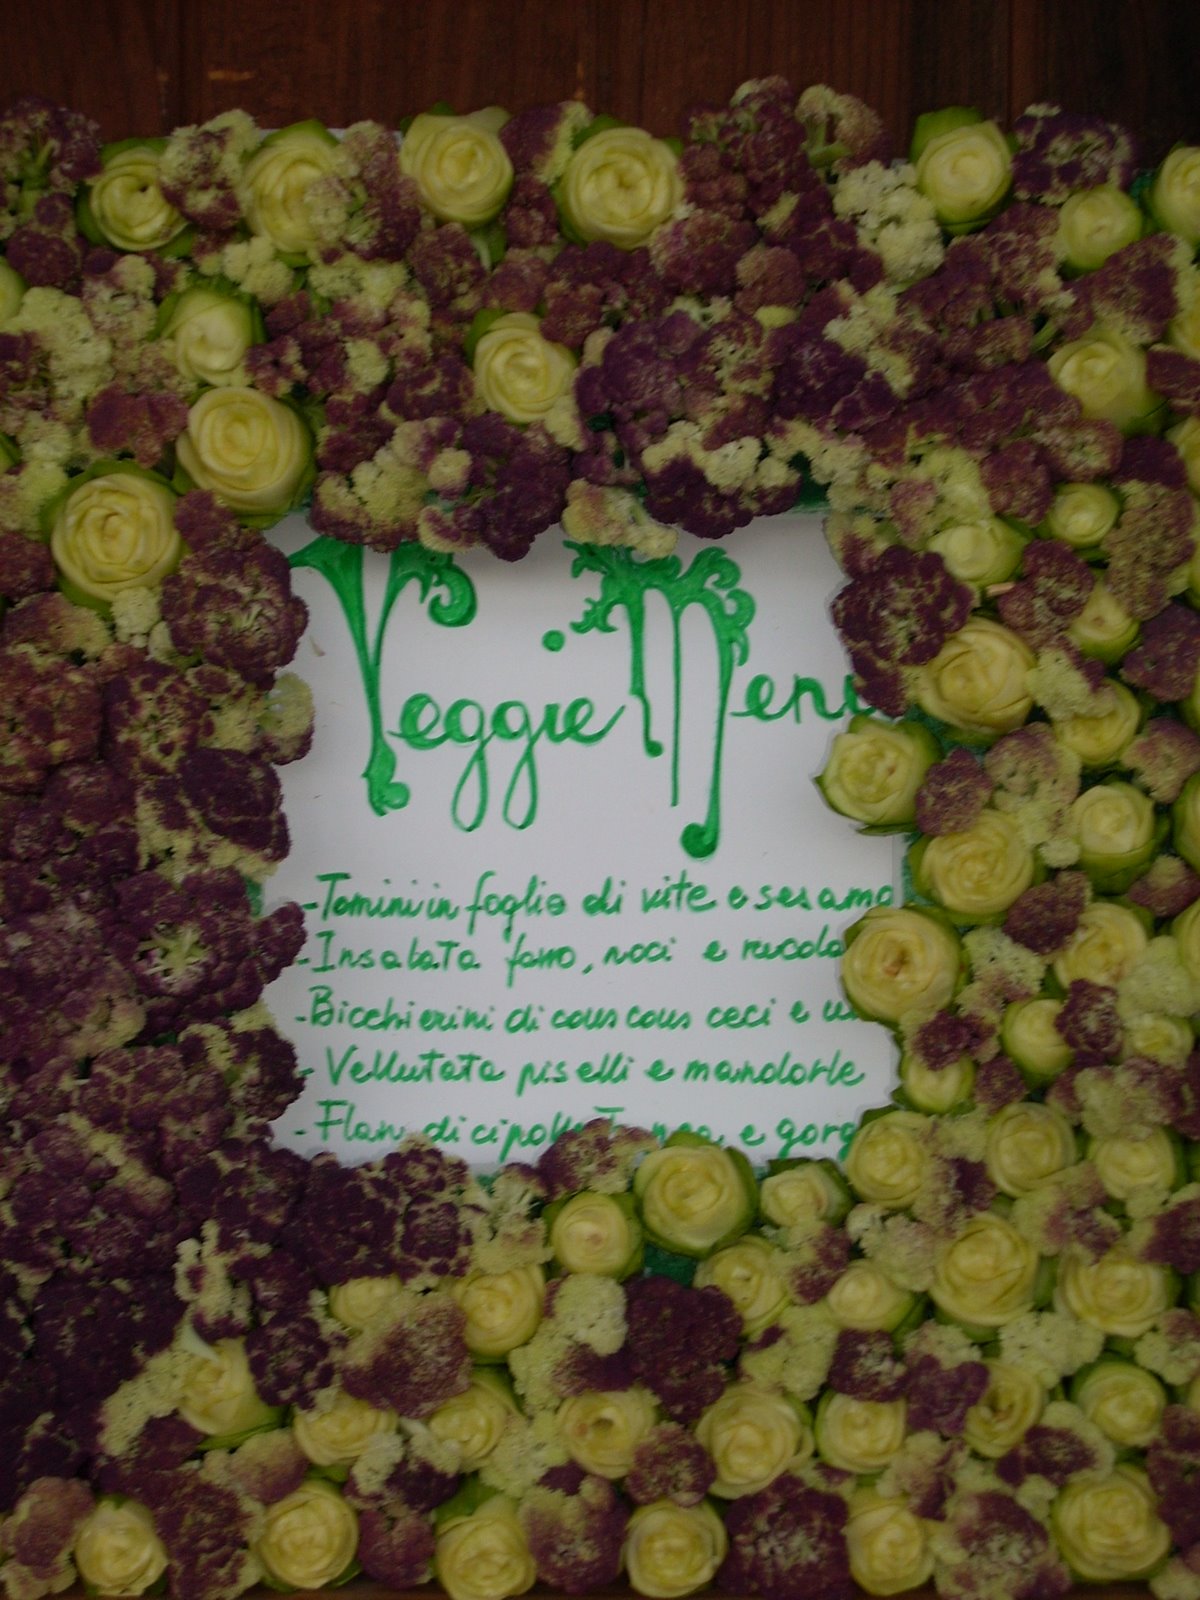 Veggie Menu
-Tomini in foglie di vite e sesamo
-Insalata farro, noci e rucola
-Bicchierini di cous cous ceci e
-Vellutata piselli e mandorle
-Flan di cipolle e